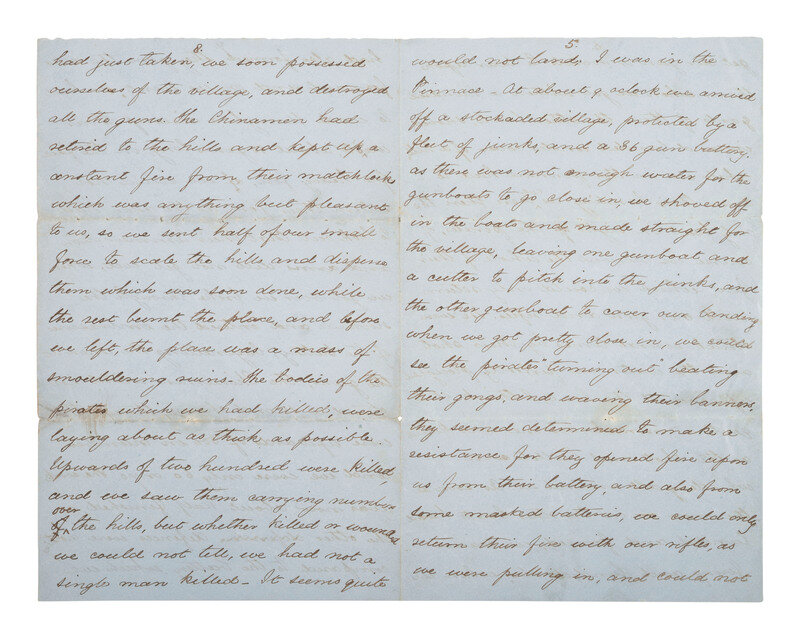 8.
had just taken, we soon possessed
ourselves of the village, and destroyed
all the guns. The Chinamen had
retired to the hills and kept up a
constant fire from their matchlock
which was anything but pleasant
to us, so we sent half of our small
force to scale the hills and disperse
them which was soon done, while
the rest burnt the place, and before
we left, the place was a mass of
smouldering ruins - The bodies of the
pirates which we had killed, were
laying about as thick as possible.
Upwards of two hundred were killed
and we saw them carrying numbers
over
of the hills, but whether killed or wounded
we could not tell, we had not a
single man killed - It seems quite
5.
would not land, I was in the
Pinnace - At about 9 oclock we arrived
off a stockaded village, protected by a
fleet of junks, and a 36 gun battery.
as there was not enough water for the
gunboats to go close in, we shoved off
in the boats and made straight for
the village, leaving one gunboat and
a cutter to pitch into the junks, and
the other gunboat to cover our landing
when we got pretty close in, we could
see the pirates "turning out" beating
their gongs, and waving their banners,
they seemed determined to make a
resistance for they opened fire upon
us from their battery, and also from
some masked batteries, we could only
return their fire with our rifles, as
we were pulling in, and could not